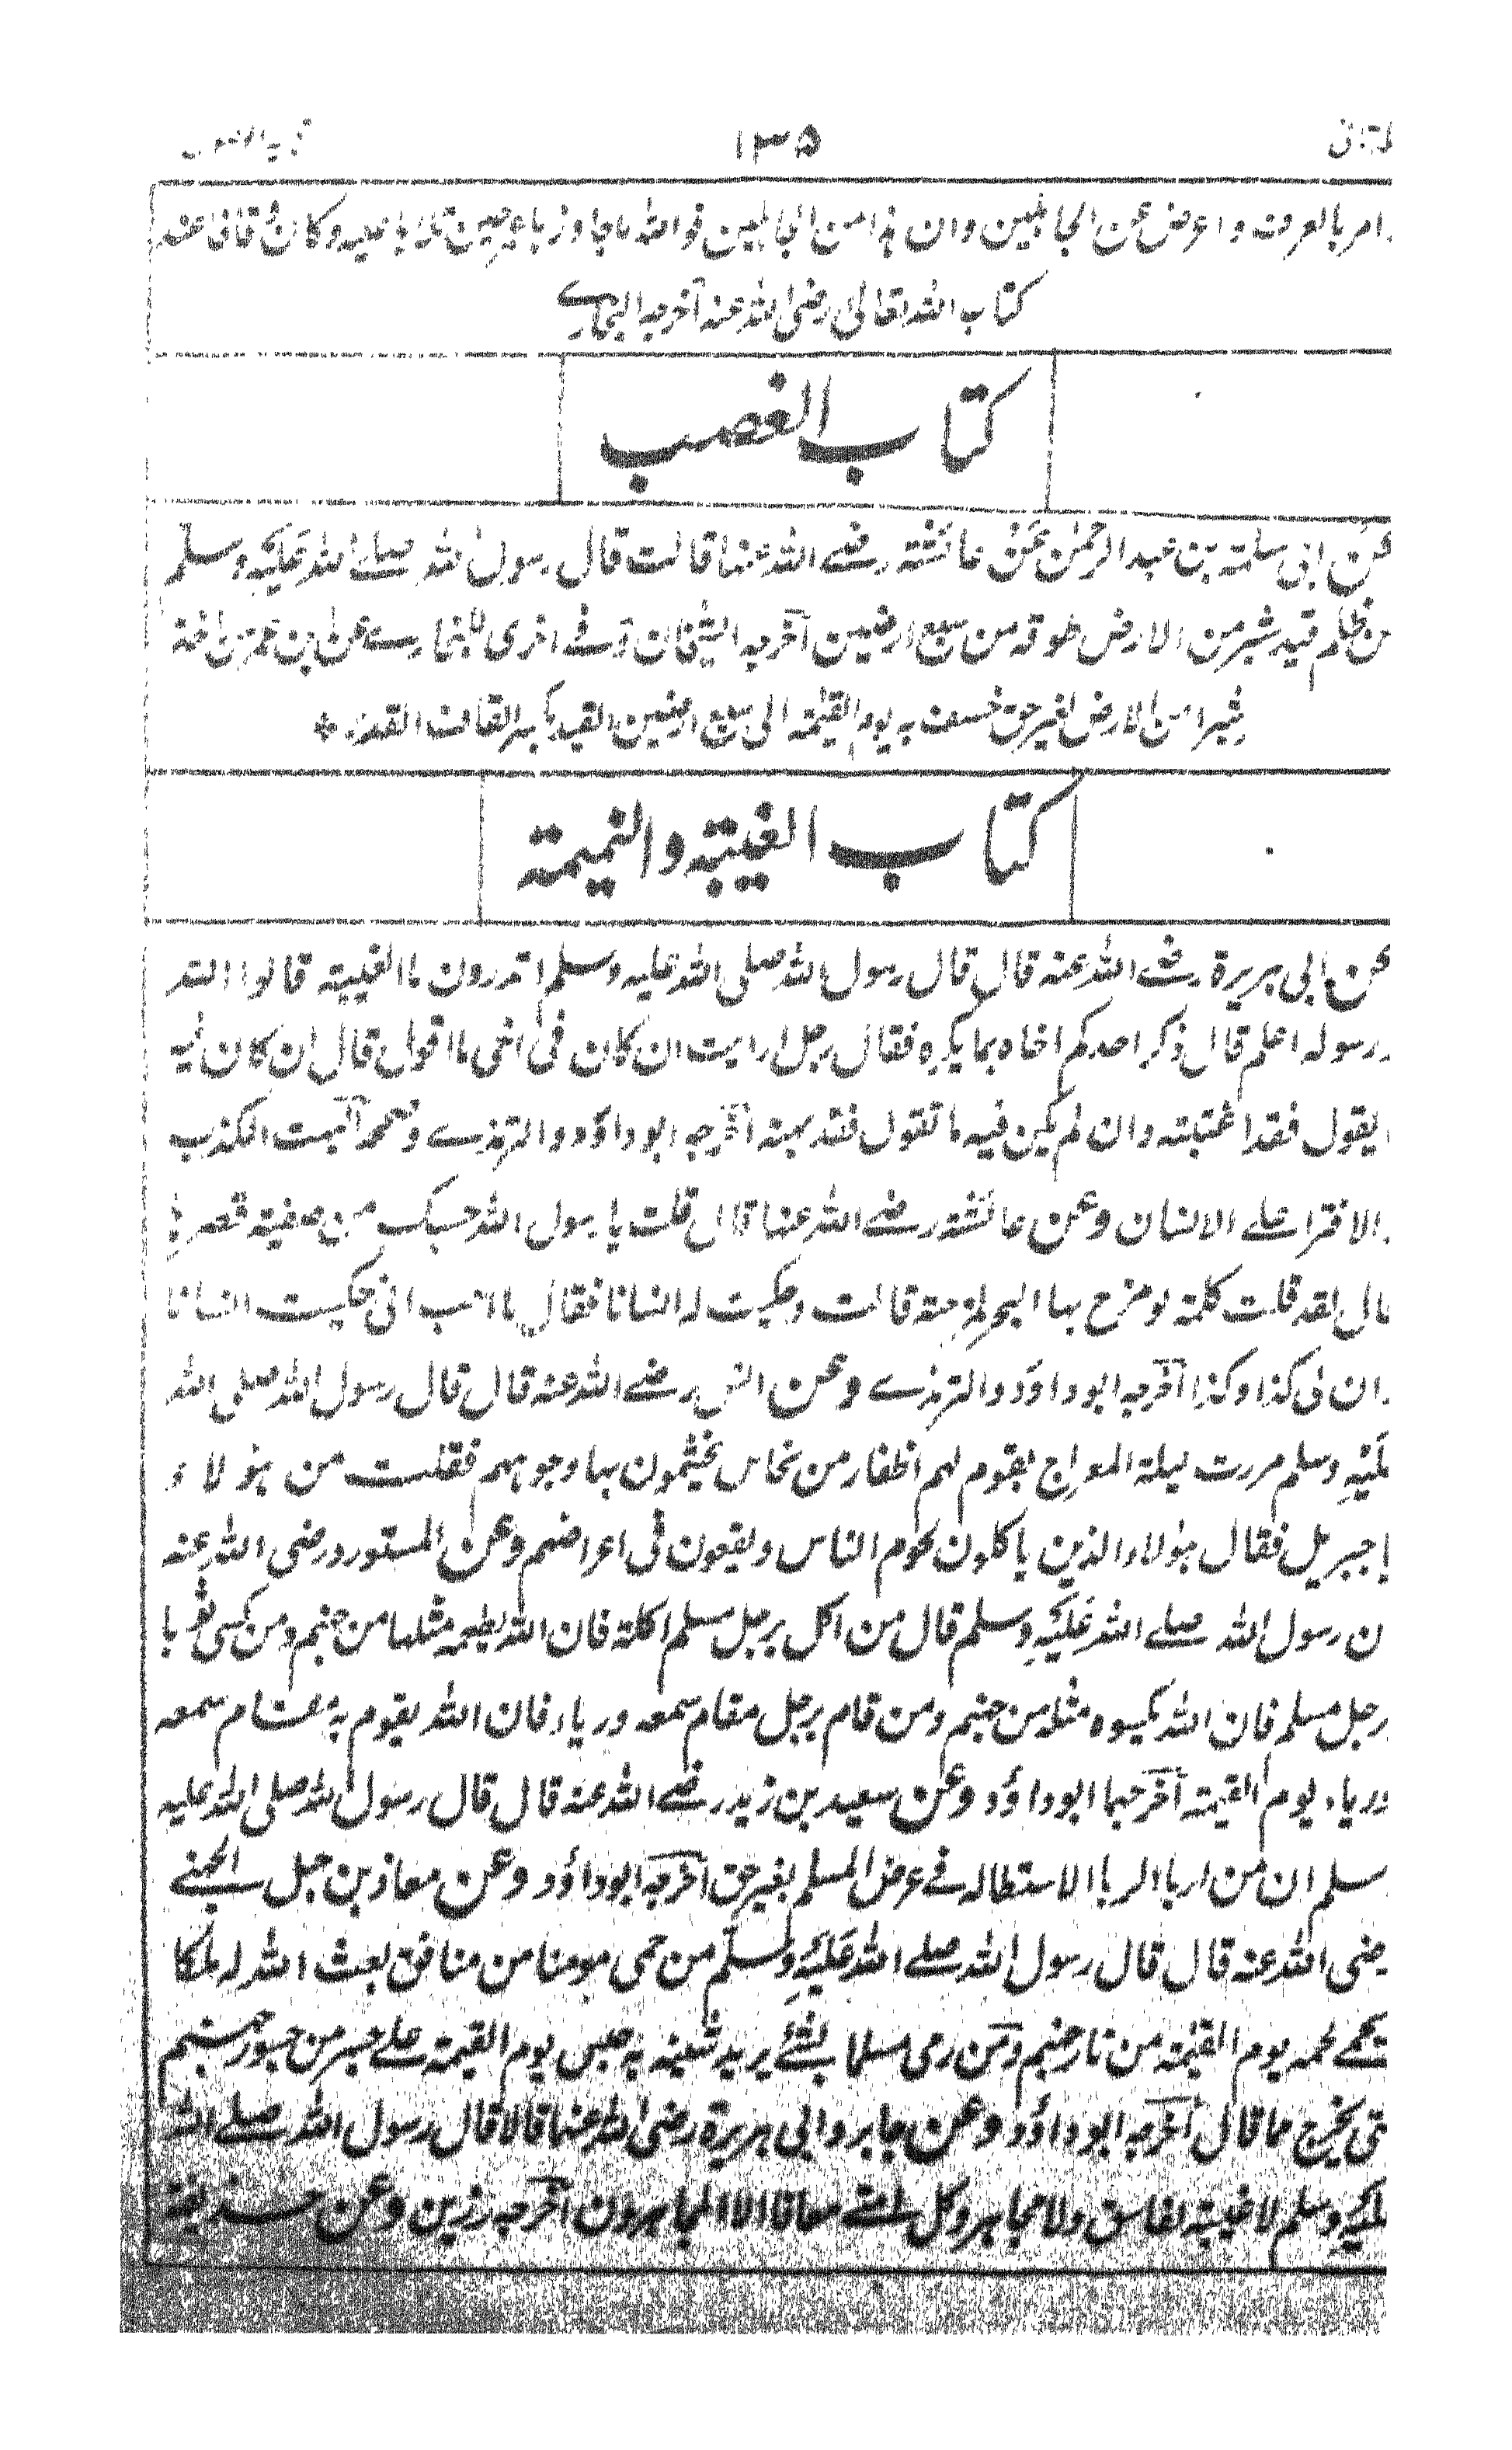 ١٣٥
وامر بالعرف واعرض عن الجاهلين وان هذا من الجاهلين فوالله ماجاوزها عمر حين تلاها عليه وكان وقافا عند
كتاب الله تعالى رضى الله عنه اخرجه البخارے
كتاب الغصب
عن ابى سلمة بن عبد الرحمن عن عائشة رضے الله عنها قالت قال رسول الله صلے الله عليه وسلم
من ظلم قيد شبر من الارض طوقه من سبع ارضين اخرجه الشيخان وفے اخرى للبخارے عن ابن عمر من اخذ
شبرا من الارض بغير حق خسف به يوم القيمة الى سبع ارضين القيد بكسر القاف القدر
كتاب الغيبة والنميمة
عن ابى هريرة رضے الله عنه قال قال رسول الله صلى الله عليه وسلم اتدرون ما الغيبة قالوا الله
ورسوله اعلم قال ذكر احدكم اخاه بما يكره فقال رجل ارايت ان كان فى اخى ما اقول قال ان كان فيه
يقول فقد اغتبته وان لم يكن فيه ما تقول فقد بهته اخرجه ابوداؤد والترمذے وصححه البهت الكذب
والافترا علے الانسان وعن عائشة رضے الله عنها قال قلت يا رسول الله حسبك من صفية قصرها
قال لقد قلت كلمة لو مزج بها البحر لمزجته قالت وحكيت له انسانا فقال ما احب انى حكيت انسانا
وان لى كذا وكذا اخرجه ابوداؤد والترمذے وعن انس رضے الله عنه قال قال رسول الله صلى الله
عليه وسلم مررت ليلة المعراج بقوم لهم اظفار من نحاس يخشمون بها وجوههم فقلت من هؤلاء
يا جبريل فقال هؤلاء الذين ياكلون لحوم الناس ويقعون فى اعراضهم وعن المستورد رضى الله عنه
ان رسول الله صلے الله عليه وسلم قال من اكل برجل مسلم اكلة فان الله يطعمه مثلها من جهنم ومن كسى ثوبا
برجل مسلم فان الله يكسوه مثله من جهنم ومن قام برجل مقام سمعه ورياء فان الله يقوم به مقام سمعه
ورياء يوم القيمة اخرجهما ابوداؤد وعن سعيد بن زيد رضے الله عنه قال قال رسول الله صلى الله عليه
وسلم ان من اربا الربا الاستطاله فے عرض المسلم بغير حق اخرجه ابوداؤد وعن معاذ بن جبل الجهنے
رضى الله عنه قال قال رسول الله صلے الله عليه وسلم من حمى مومنا من منافق بعث الله له ملكا
يحمے لحمه يوم القيمة من نار جهنم ومن رمى مسلما بشئے يريد شينه به حبس يوم القيمة علے جسر من جسور جهنم
حتى يخرج مما قال اخرجه ابوداؤد وعن جابر وابى هريرة رضى الله عنهما قالا قال رسول الله صلے الله
عليه وسلم لا غيبة لفاسق ولا مجاهر وكل امتے معافا الا المجاهرون اخرجه رزين وعن حذيفة